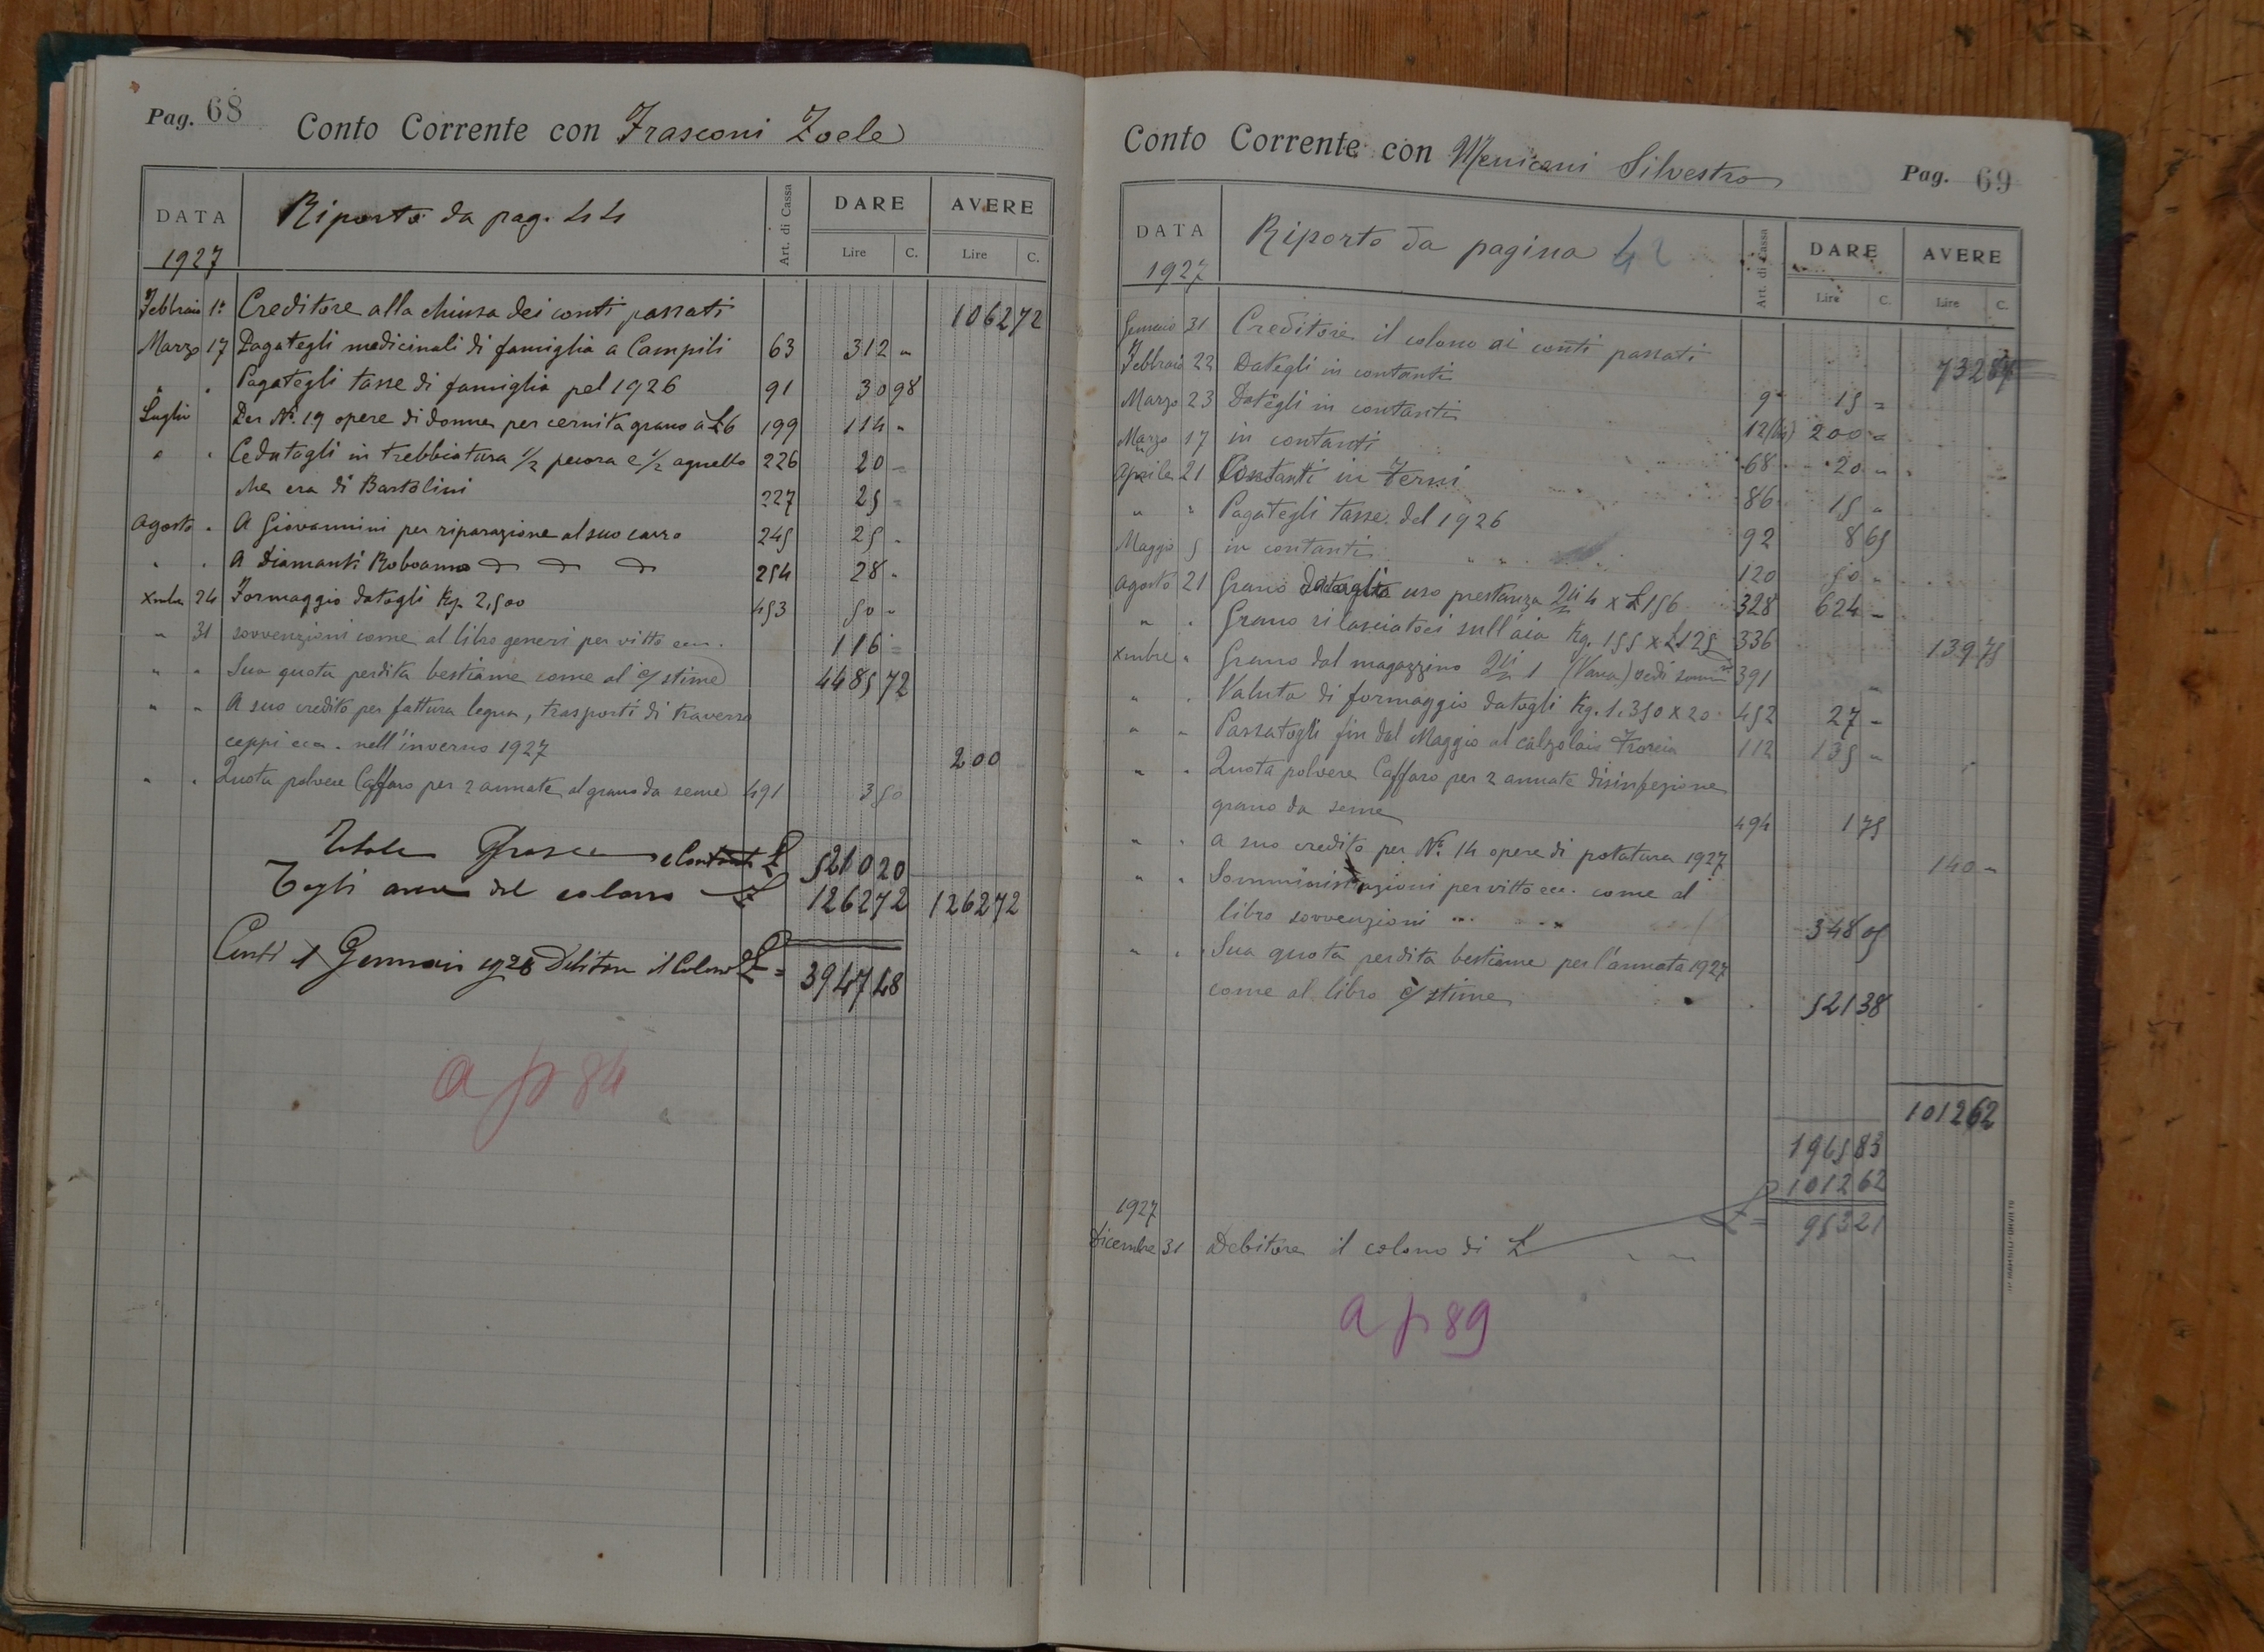 Pag. 68
Conto Corrente con Frasconi Zoele
DATA
1927
Riporto da pag. 44
Art. di Cassa
DARE
AVERE
Lire C.
Lire C.
Febbraio 1° Creditore alla chiusa dei conti passati 1062 72
Marzo 17 Pagategli medicinali di famiglia a Campili 63 312 "
" " Pagategli tasse di famiglia pel 1926 91 30 98
Luglio Per N° 19 opere di donne per cernita grano a £6 199 114 "
" " Cedutogli in trebbiatura 1/2 pecora e 1/2 agnello 226 20 "
che era di Bartolini 227 25 "
Agosto " A Giovannini per riparazione al suo carro 245 25 "
" " A Diamanti Roboamo " " " 254 28 "
Xmbre 24 Formaggio datogli Kg. 2,500 453 50 "
" 31 sovvenzioni come al libro generi per vitto ecc. 116 "
" " Sua quota perdita bestiame come al c/ stime 4485 72
" " A suo credito per fattura legna, trasporti di traverse
ceppi ecc. nell'inverno 1927 200
" " Quota polvere Caffaro per 2 annate al grano da seme 491 3 50
Totale £ 5210 20
Togli avere del colono £ 1262 72 1262 72
Conti 1 Gennaio 1928 Debitore il Colono £ = 3947 48
a p 84
Conto Corrente con Menicani Silvestro
Pag. 69
DATA
1927
Riporto da pagina 42
Art. di Cassa
DARE
AVERE
Lire C.
Lire C.
Gennaio 31 Creditore il colono ai conti passati 732 87
Febbraio 22 Dategli in contanti 9 15 =
Marzo 23 Dategli in contanti 12(bis) 200 "
Marzo 17 in contanti 68 20 "
Aprile 21 Contanti in Terni 86 15 "
" " Pagategli tasse del 1926 92 8 65
Maggio 5 in contanti " " 120 50 "
Agosto 21 Grano uso prestanza Qli 4 x £156 328 624 "
" " Grano rilasciatoci sull'aia Kg. 155 x £125 336 139 75
Xmbre " Grano dal magazzino Qli 1 vedi 391 "
" " Valuta di formaggio datogli Kg. 1.350 x 20 452 27 "
" " Passatogli fin dal Maggio al calzolaio 112 135 "
" " Quota polvere Caffaro per 2 annate disinfezione
grano da seme 494 1 75
" " A suo credito per N° 14 opere di potatura 1927 140 "
" " Somministrazioni per vitto ecc. come al
libro sovvenzioni " " 348 05
" " Sua quota perdita bestiame per l'annata 1927
come al libro c/ stime 521 38
1012 62
1965 83
1012 62
1927
Dicembre 31 Debitore il colono di £ £ = 953 21
a p 89